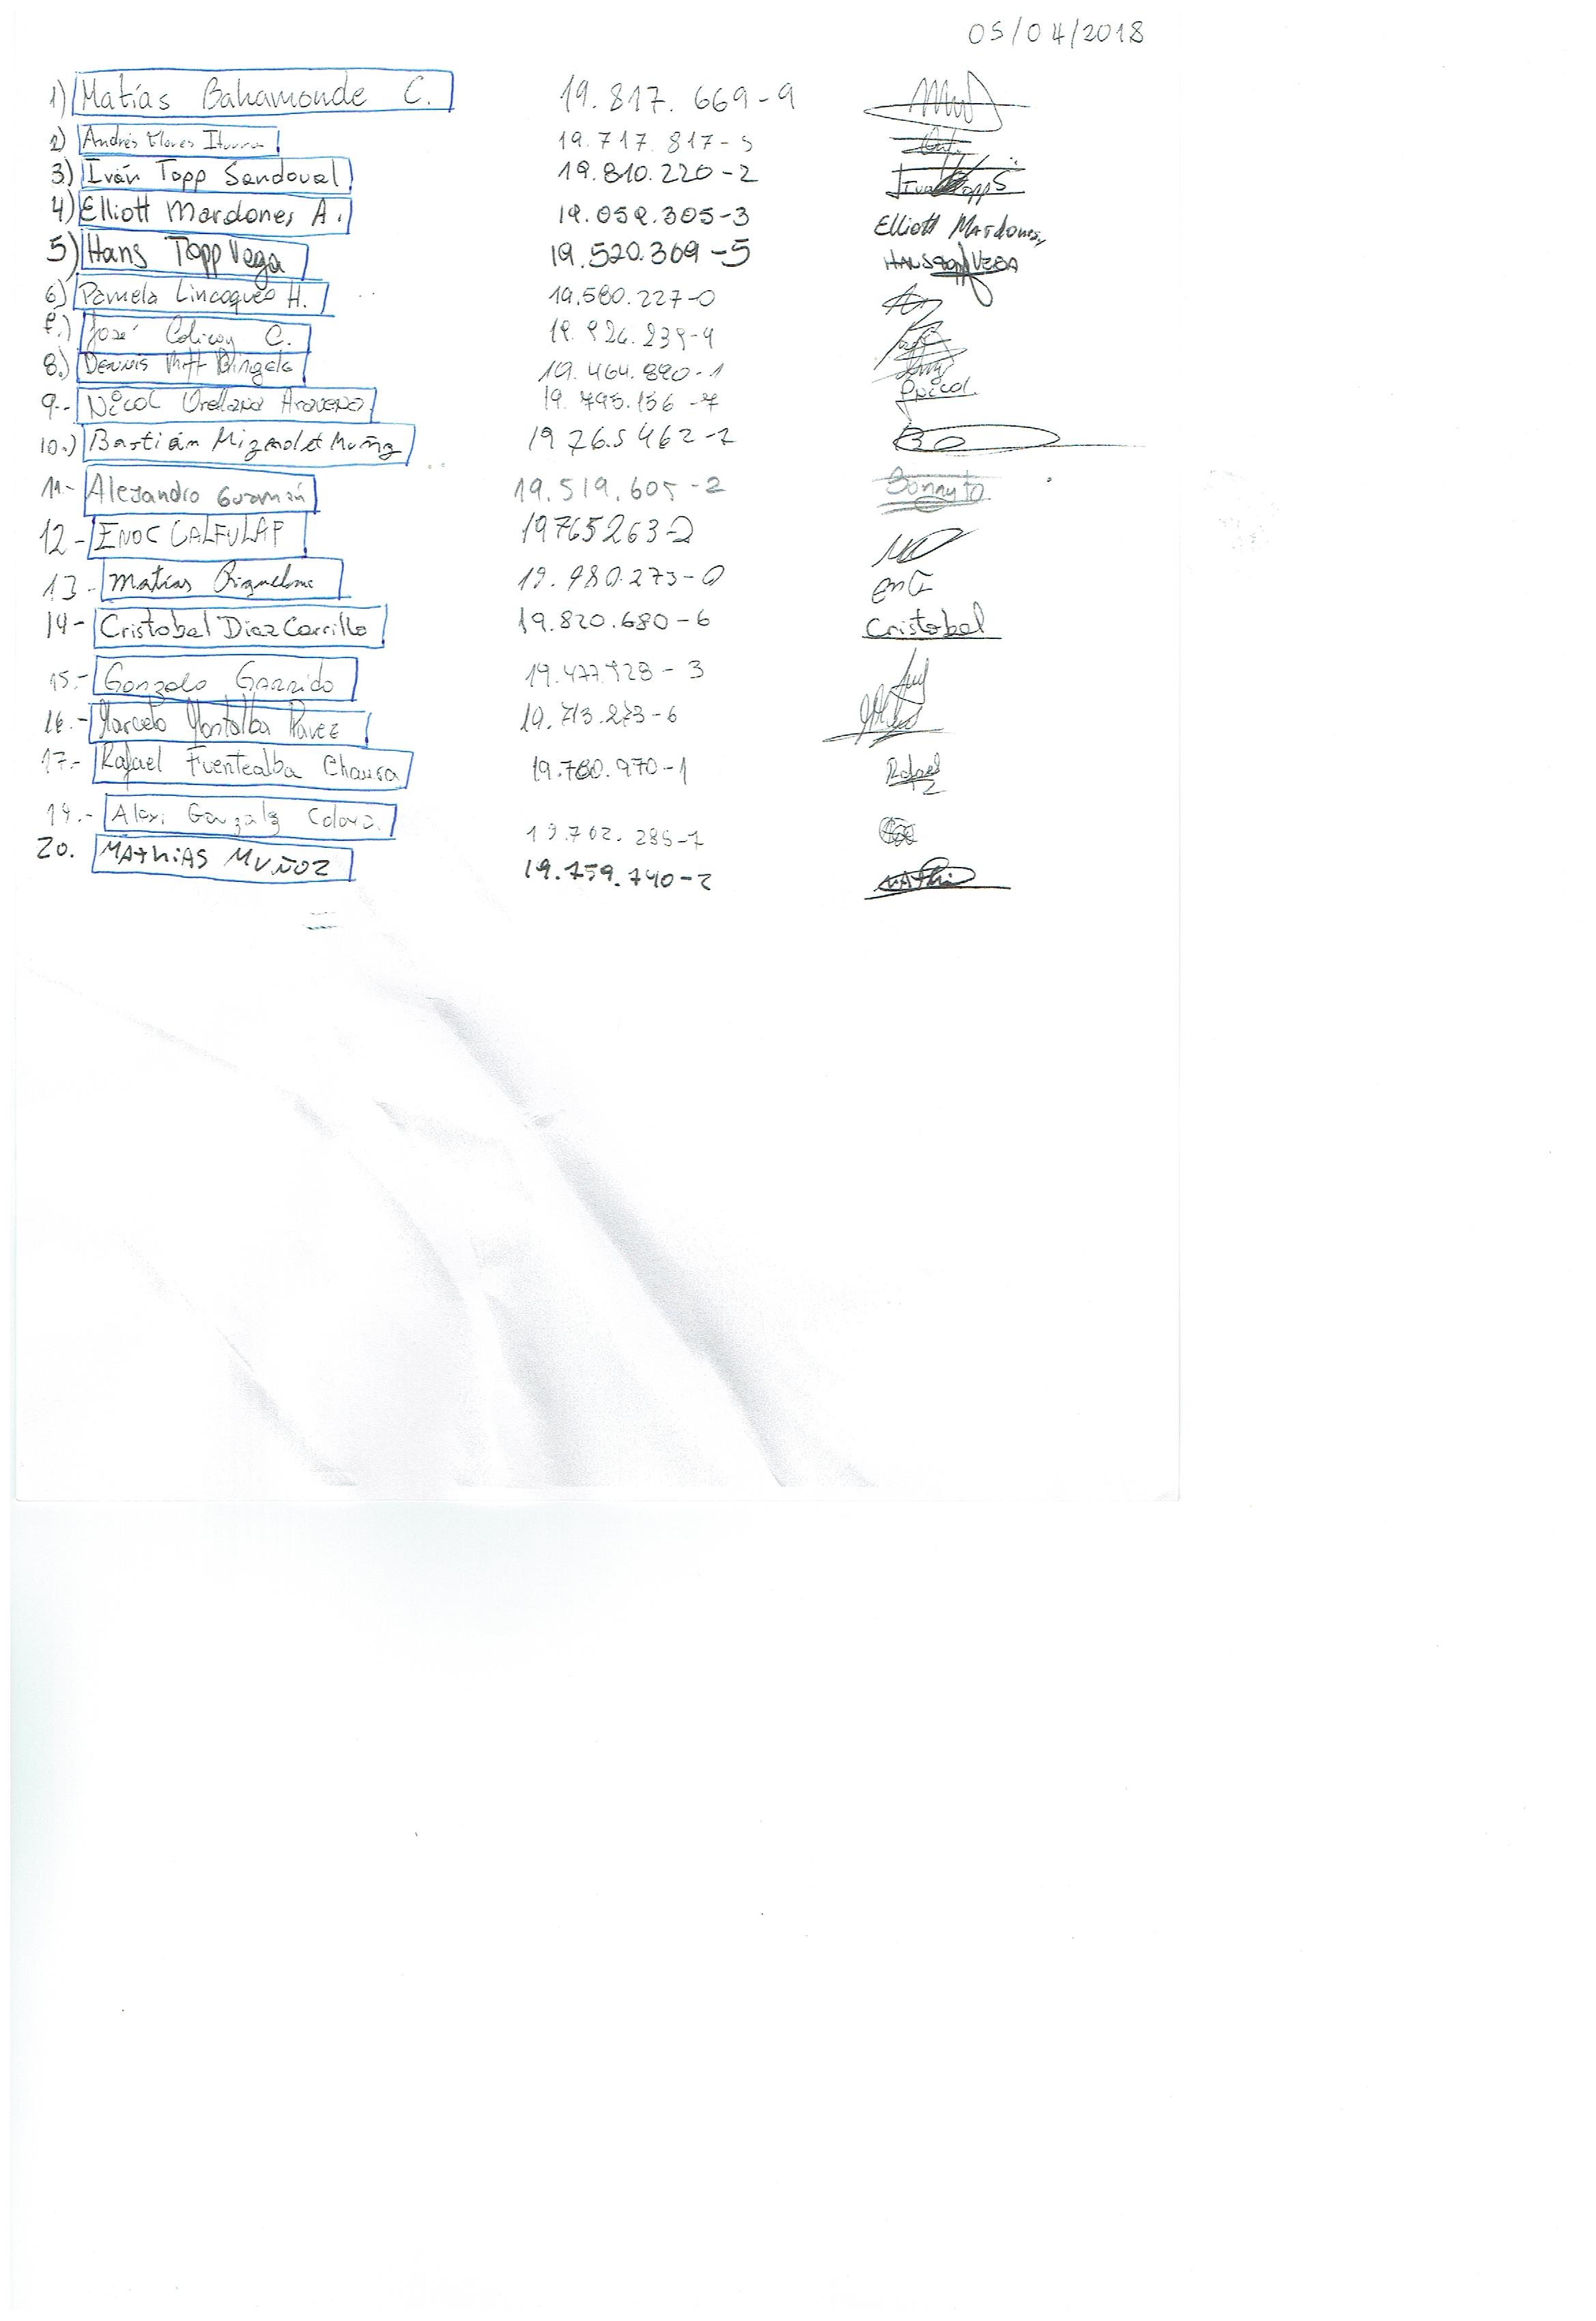 05/04/2018
1) Matías Bahamonde C. 19.817.669-9
2) Andrés Flores Iturra 19.717.817-5
3) Iván Topp Sandoval 19.810.220-2 Ivan Topp S
4) Elliott Mardones A. 19.059.305-3 Elliott Mardones
5) Hans Topp Vega 19.520.369-5 HANS Topp VEGA
6) Pamela Lincoqueo H. 19.580.227-0
José C.
8.) Dennis 19.464.890-1
9.- Nicol Orellana Aravena 19.795.156-7 Nicol
10.) Bastián Muñoz
11.- Alejandro Guzmán 19.519.605-2
12- ENOC CALFULAF 19765263-2
13- Matías Riquelme 19.980.273-0
14- Cristobal Diaz Carrillo 19.820.680-6 Cristobal
15.- Gonzalo Garrido
16.- Marcelo Montalba Pavez 19.713.273-6
17.- Rafael Fuentealba 19.780.970-1 Rafael
19.- 19.702.285-7
20. MATHIAS MUÑOZ 19.759.740-2